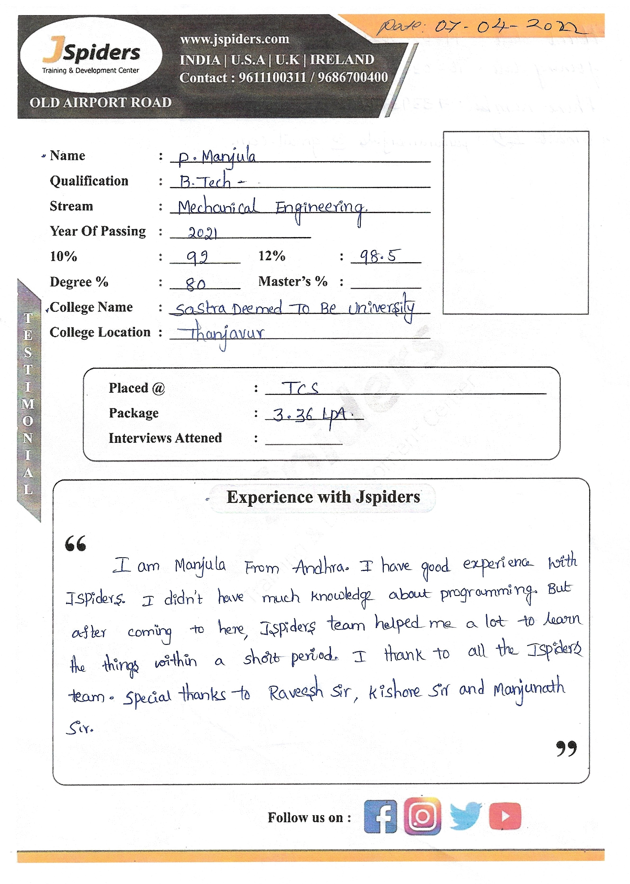 Date: 07-04-2022
JSpiders
Training & Development Center
OLD AIRPORT ROAD
www.jspiders.com
INDIA | U.S.A | U.K | IRELAND
Contact : 9611100311 / 9686700400
Name : P. Manjula
Qualification : B.Tech -
Stream : Mechanical Engineering.
Year Of Passing : 2021
10% : 92 12% : 98.5
Degree % : 80 Master's % :
College Name : Sastra Deemed To Be University
College Location : Thanjavur
TESTIMONIAL
Placed @ : TCS
Package : 3.36 LPA.
Interviews Attened :
Experience with Jspiders
“
I am Manjula From Andhra. I have good experience with
JSpiders. I didn't have much knowledge about programming. But
after coming to here, Jspiders team helped me a lot to learn
the things within a short period. I thank to all the JSpiders
team. Special thanks to Raveesh Sir, Kishore Sir and Manjunath
Sir.
”
Follow us on :